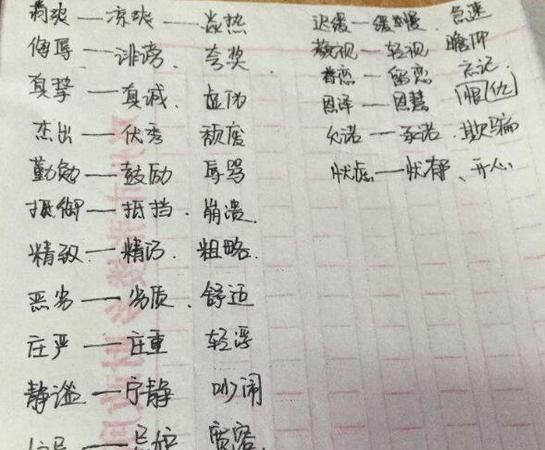 凉爽 炎热
侮辱——诽谤 夸奖
真挚——真诚 虚伪
杰出——优秀 颓废
勤勉——鼓励 辱骂
抵御——抵挡 崩溃
精致——精巧 粗略
恶劣——劣质 舒适
庄严——庄重 轻浮
静谧——宁静 吵闹
忌妒 宽容
迟缓——缓慢 急速
轻视 瞻仰
眷恋 忘记
恩泽——恩惠
允诺——承诺 欺骗
忧郁、开心